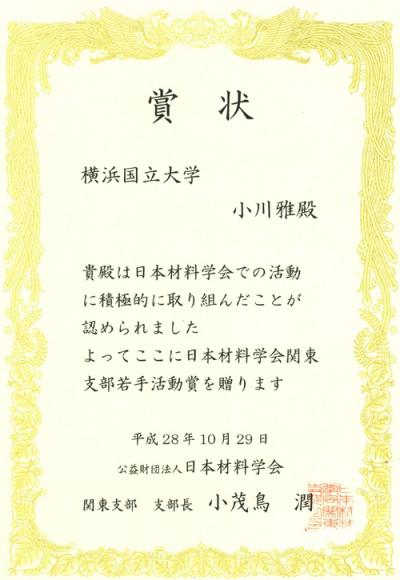 賞状
横浜国立大学
小川雅殿
貴殿は日本材料学会での活動
に積極的に取り組んだことが
認められました
よってここに日本材料学会関東
支部若手活動賞を贈ります
平成28年10月29日
公益財団法人日本材料学会
関東支部 支部長 小茂鳥 潤